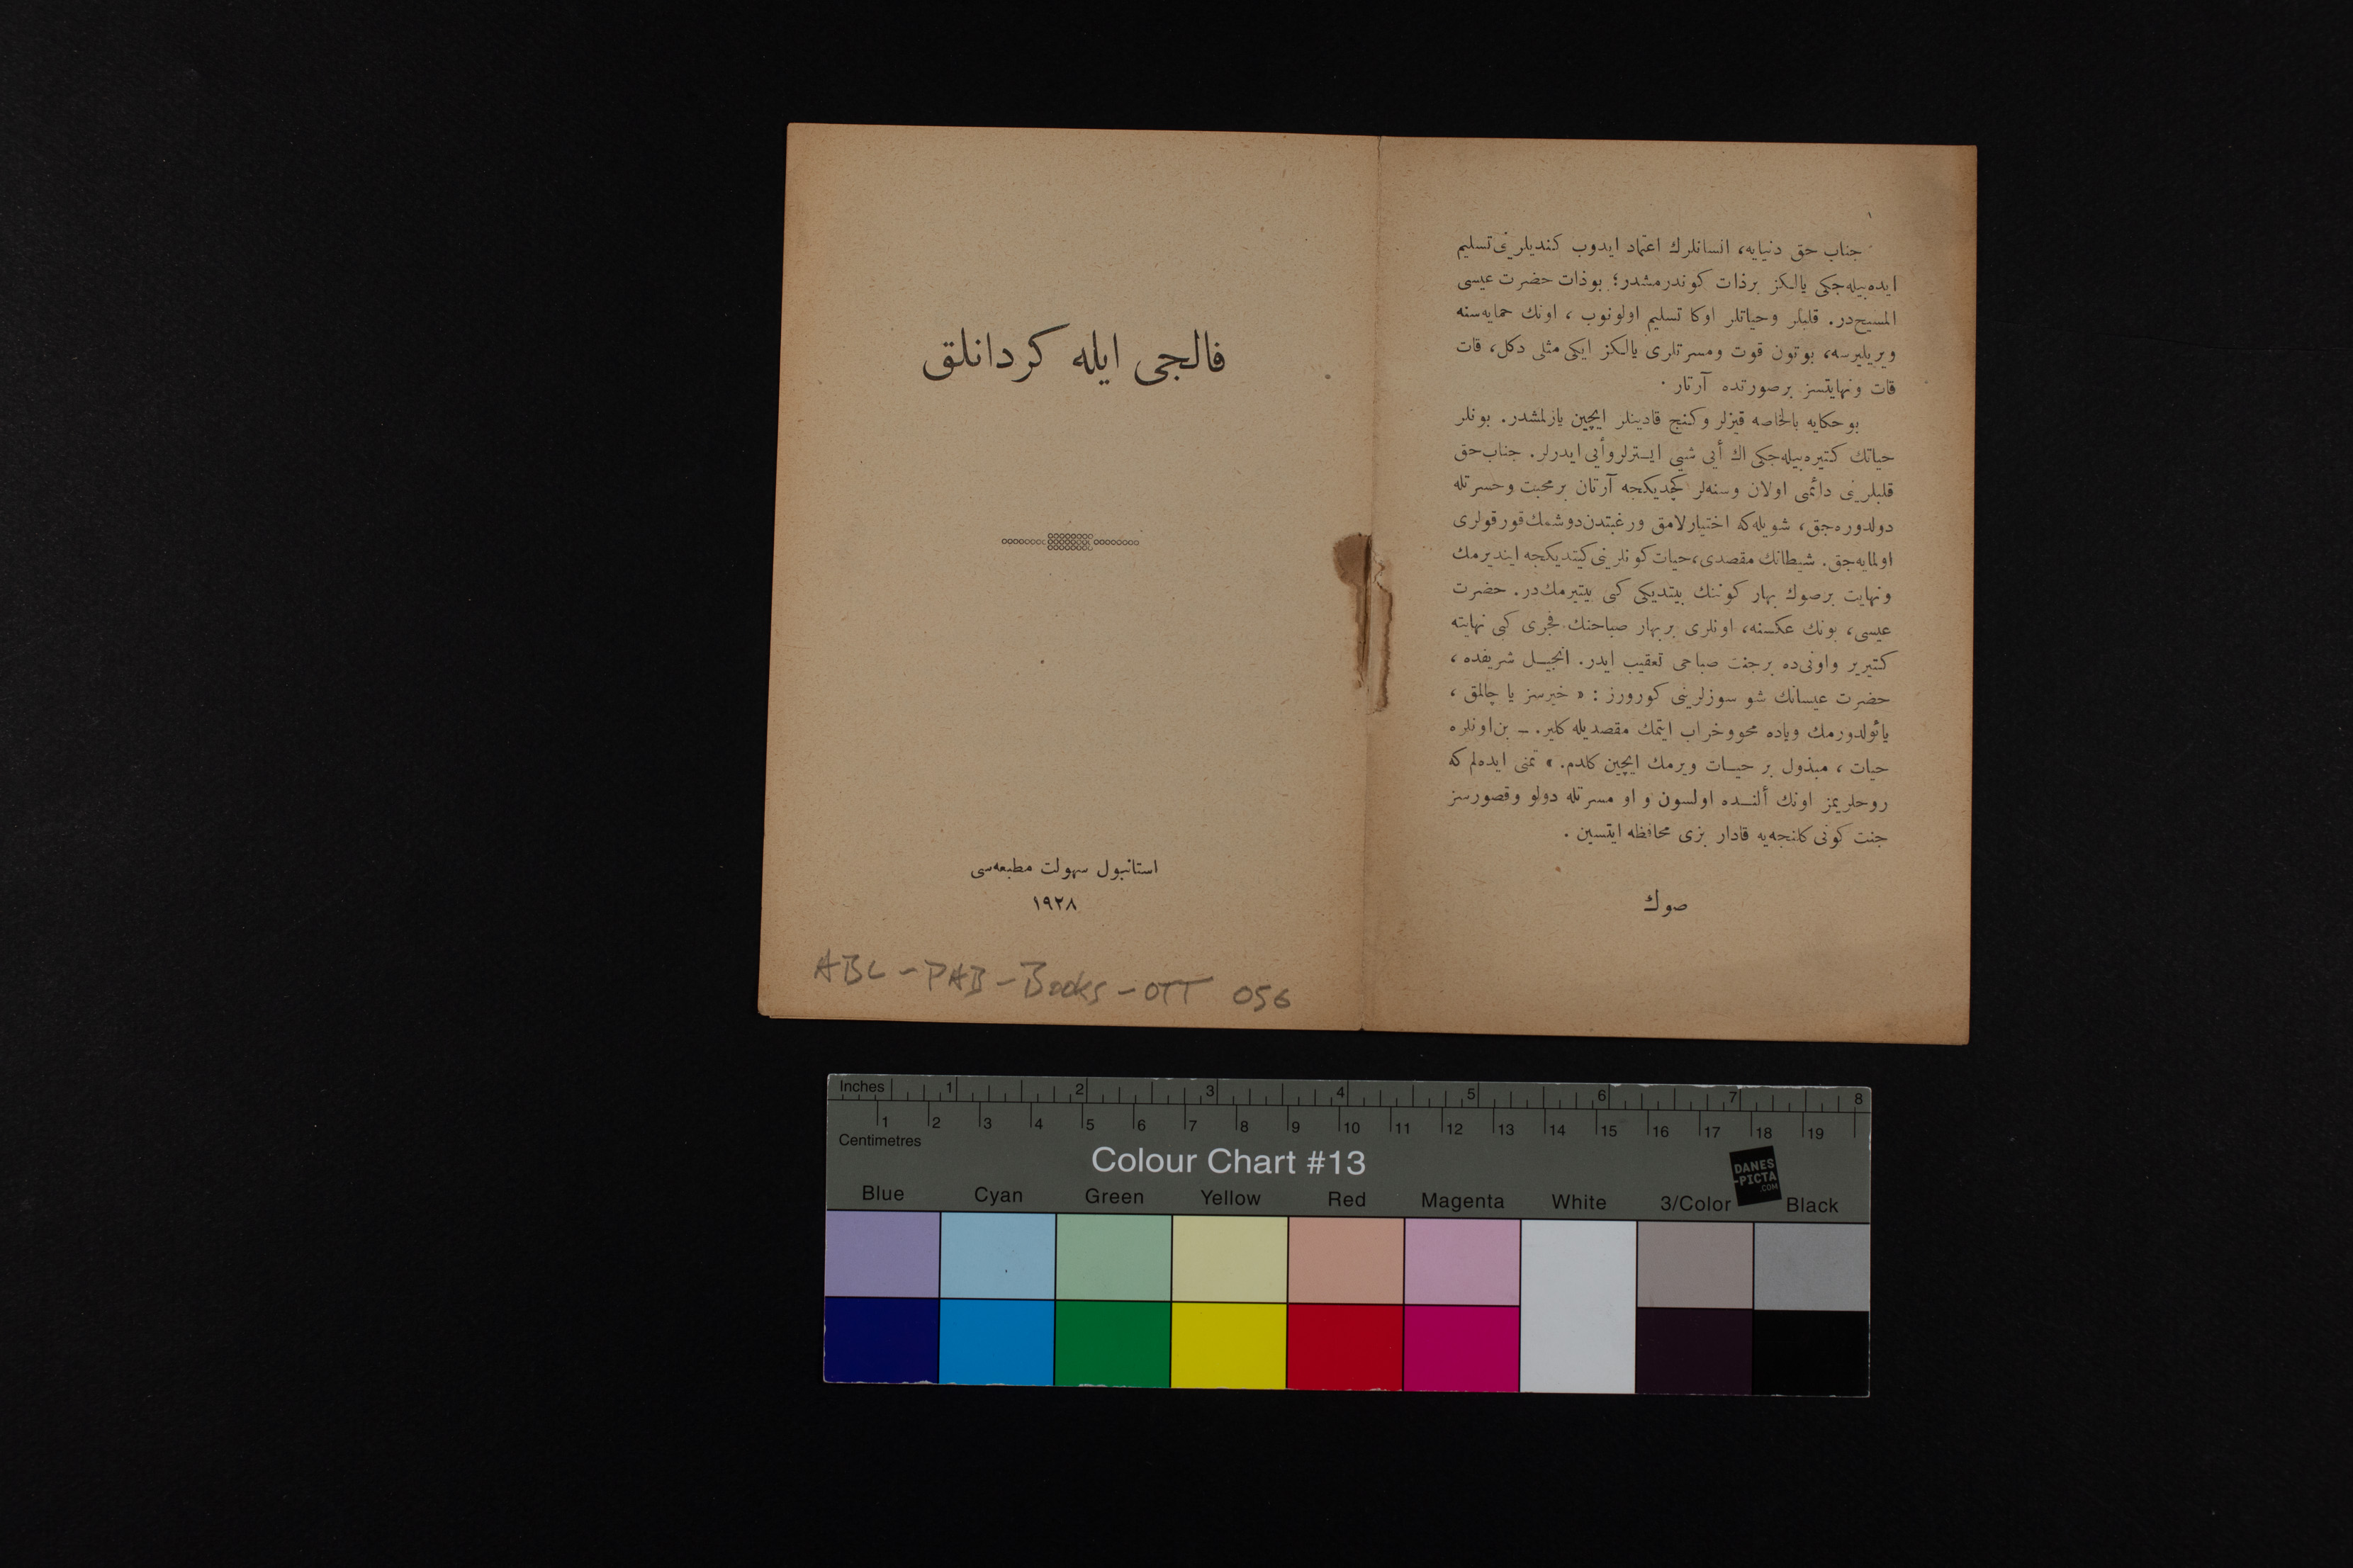 فالجی ایله كردانلق
استانبول سهولت مطبعه‌سی
١٩٢٨
ABC - PAB - Books - OTT 056
جناب حق دنیایه، انسانلرك اعتماد ایدوب كندیلرینی تسلیم
ایده‌بیله‌جكی یالكز برذات كوندرمشدر؛ بوذات حضرت عیسی
المسیح‌در. قلبلر وحیاتلر اوكا تسلیم اولونوب ، اونك حمایه‌سنه
ویریلیرسه، بوتون قوت ومسرتلری یالكز ایكی مثلی دكل، قات
قات ونهایتسز برصورتده آرتار .
بو حكایه بالخاصه قیزلر وكنج قادینلر ایچین یازلمشدر. بونلر
حیاتك كتیره‌بیله‌جكی اك أیی شیی ایسترلروأیی ایدرلر. جناب حق
قلبلرینی دائمی اولان وسنه‌لر كچدیكجه آرتان برمحبت وحسرتله
دولدوره‌جق، شویله‌كه اختیارلامق ورغبتدن‌دوشمك‌قورقولری
اولمایه‌جق. شیطانك مقصدی،حیات كونلرینی كیتدیكجه ایندیرمك
ونهایت برصوك بهار كوننك بیتدیكی كبی بیتیرمك‌در. حضرت
عیسی، بونك عكسنه، اونلری بربهار صباحنك فجری كبی نهایته
كتیریر واونی‌ده برجنت صباحی تعقیب ایدر. انجیــل شریفده ،
حضرت عیسانك شو سوزلرینی كورورز : « خیرسز یا چالمق ،
یائولدورمك ویاده محووخراب ایتمك مقصدیله كلیر. – بن‌اونلره
حیات ، مبذول بر حیــات ویرمك ایچین كلدم. » تمنی ایده‌لم كه
روحلریمز اونك ألنــده اولسون و او مسرتله دولو وقصورسز
جنت كونی كلنجه‌یه قادار بزی محافظه ایتسین .
صوك
Inches 1 2 3 4 5 6 7 8
1 2 3 4 5 6 7 8 9 10 11 12 13 14 15 16 17 18 19
Centimetres
Colour Chart #13
DANES
-PICTA
.COM
Blue Cyan Green Yellow Red Magenta White 3/Color Black